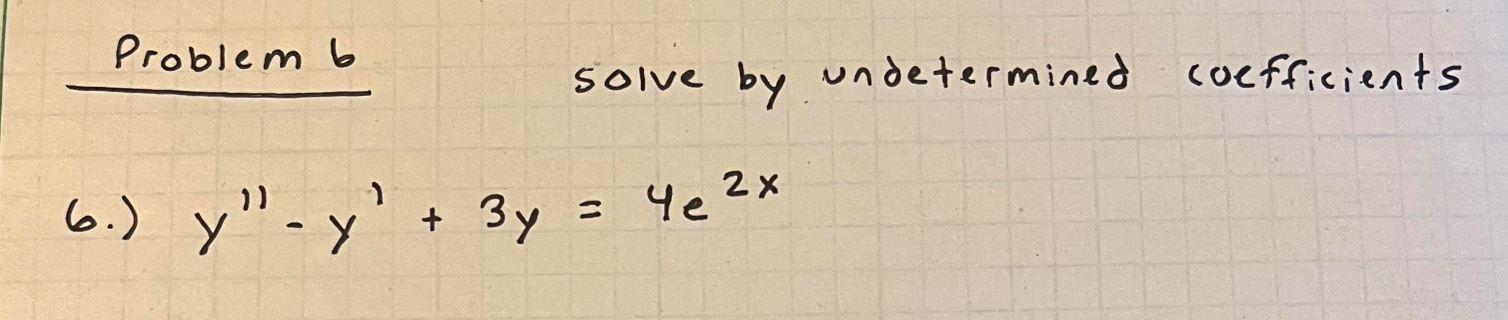 Problem 6
solve by undetermined coefficients
6.) y'' - y' + 3y = 4e^{2x}